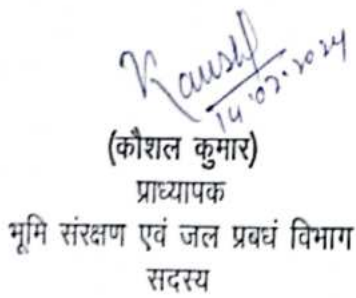 Kaushl
14.02.2024
(कौशल कुमार)
प्राध्यापक
भूमि संरक्षण एवं जल प्रबधं विभाग
सदस्य